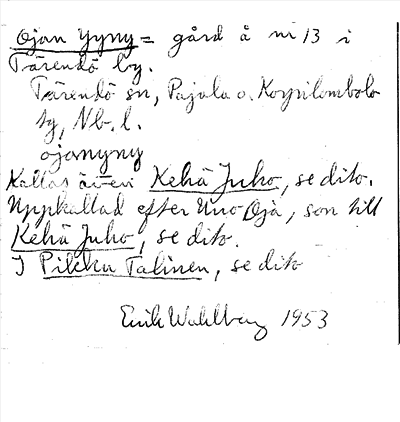 Ojan Yyny = gård å nr 13 i
Tärendö by.
Tärendö sn, Pajala o. Korpilombolo
tg, Nb. l.
ojanyny
Kallas även Kehä Juho, se dito.
Uppkallad efter Uno Oja, son till
Kehä Juho, se dito.
I Pikku Talinen, se dito
Erik Wahlberg 1953